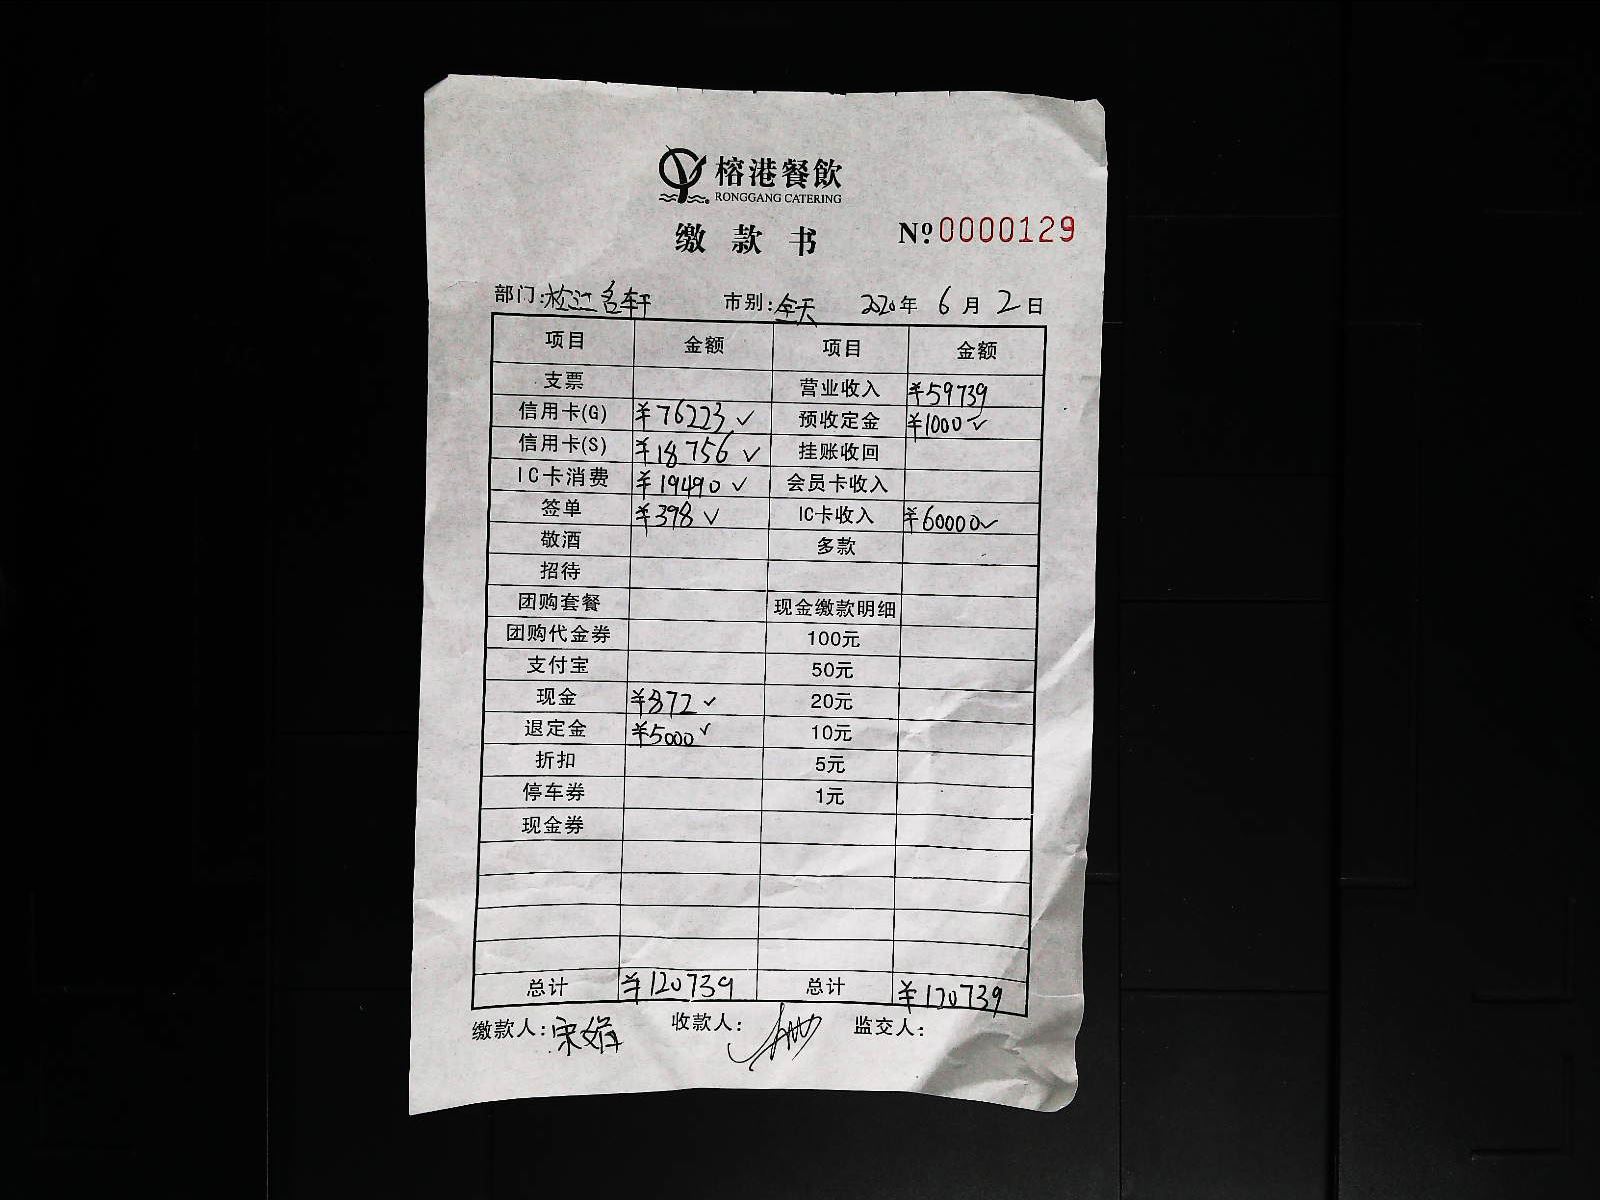 榕港餐飲
RONGGANG CATERING
缴款书 №0000129
部门:松江名轩 市别:全天 2020年6月2日
项目 金额 项目 金额
支票 营业收入 ¥59739
信用卡(G) ¥76223✓ 预收定金 ¥1000✓
信用卡(S) ¥18756✓ 挂账收回
IC卡消费 ¥19490✓ 会员卡收入
签单 ¥398✓ IC卡收入 ¥60000✓
敬酒 多款
招待
团购套餐 现金缴款明细
团购代金券 100元
支付宝 50元
现金 ¥872✓ 20元
退定金 ¥5000✓ 10元
折扣 5元
停车券 1元
现金券
总计 ¥120739 总计 ¥120739
缴款人:宋娟 收款人: 监交人: